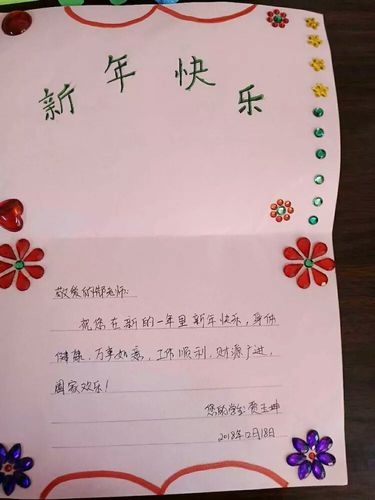 新年快乐
敬爱的郑老师:
祝您在新的一年里新年快乐,身体
健康,万事如意,工作顺利,财源广进,
阖家欢乐!
您的学生:贾玉坤
2018年12月18日